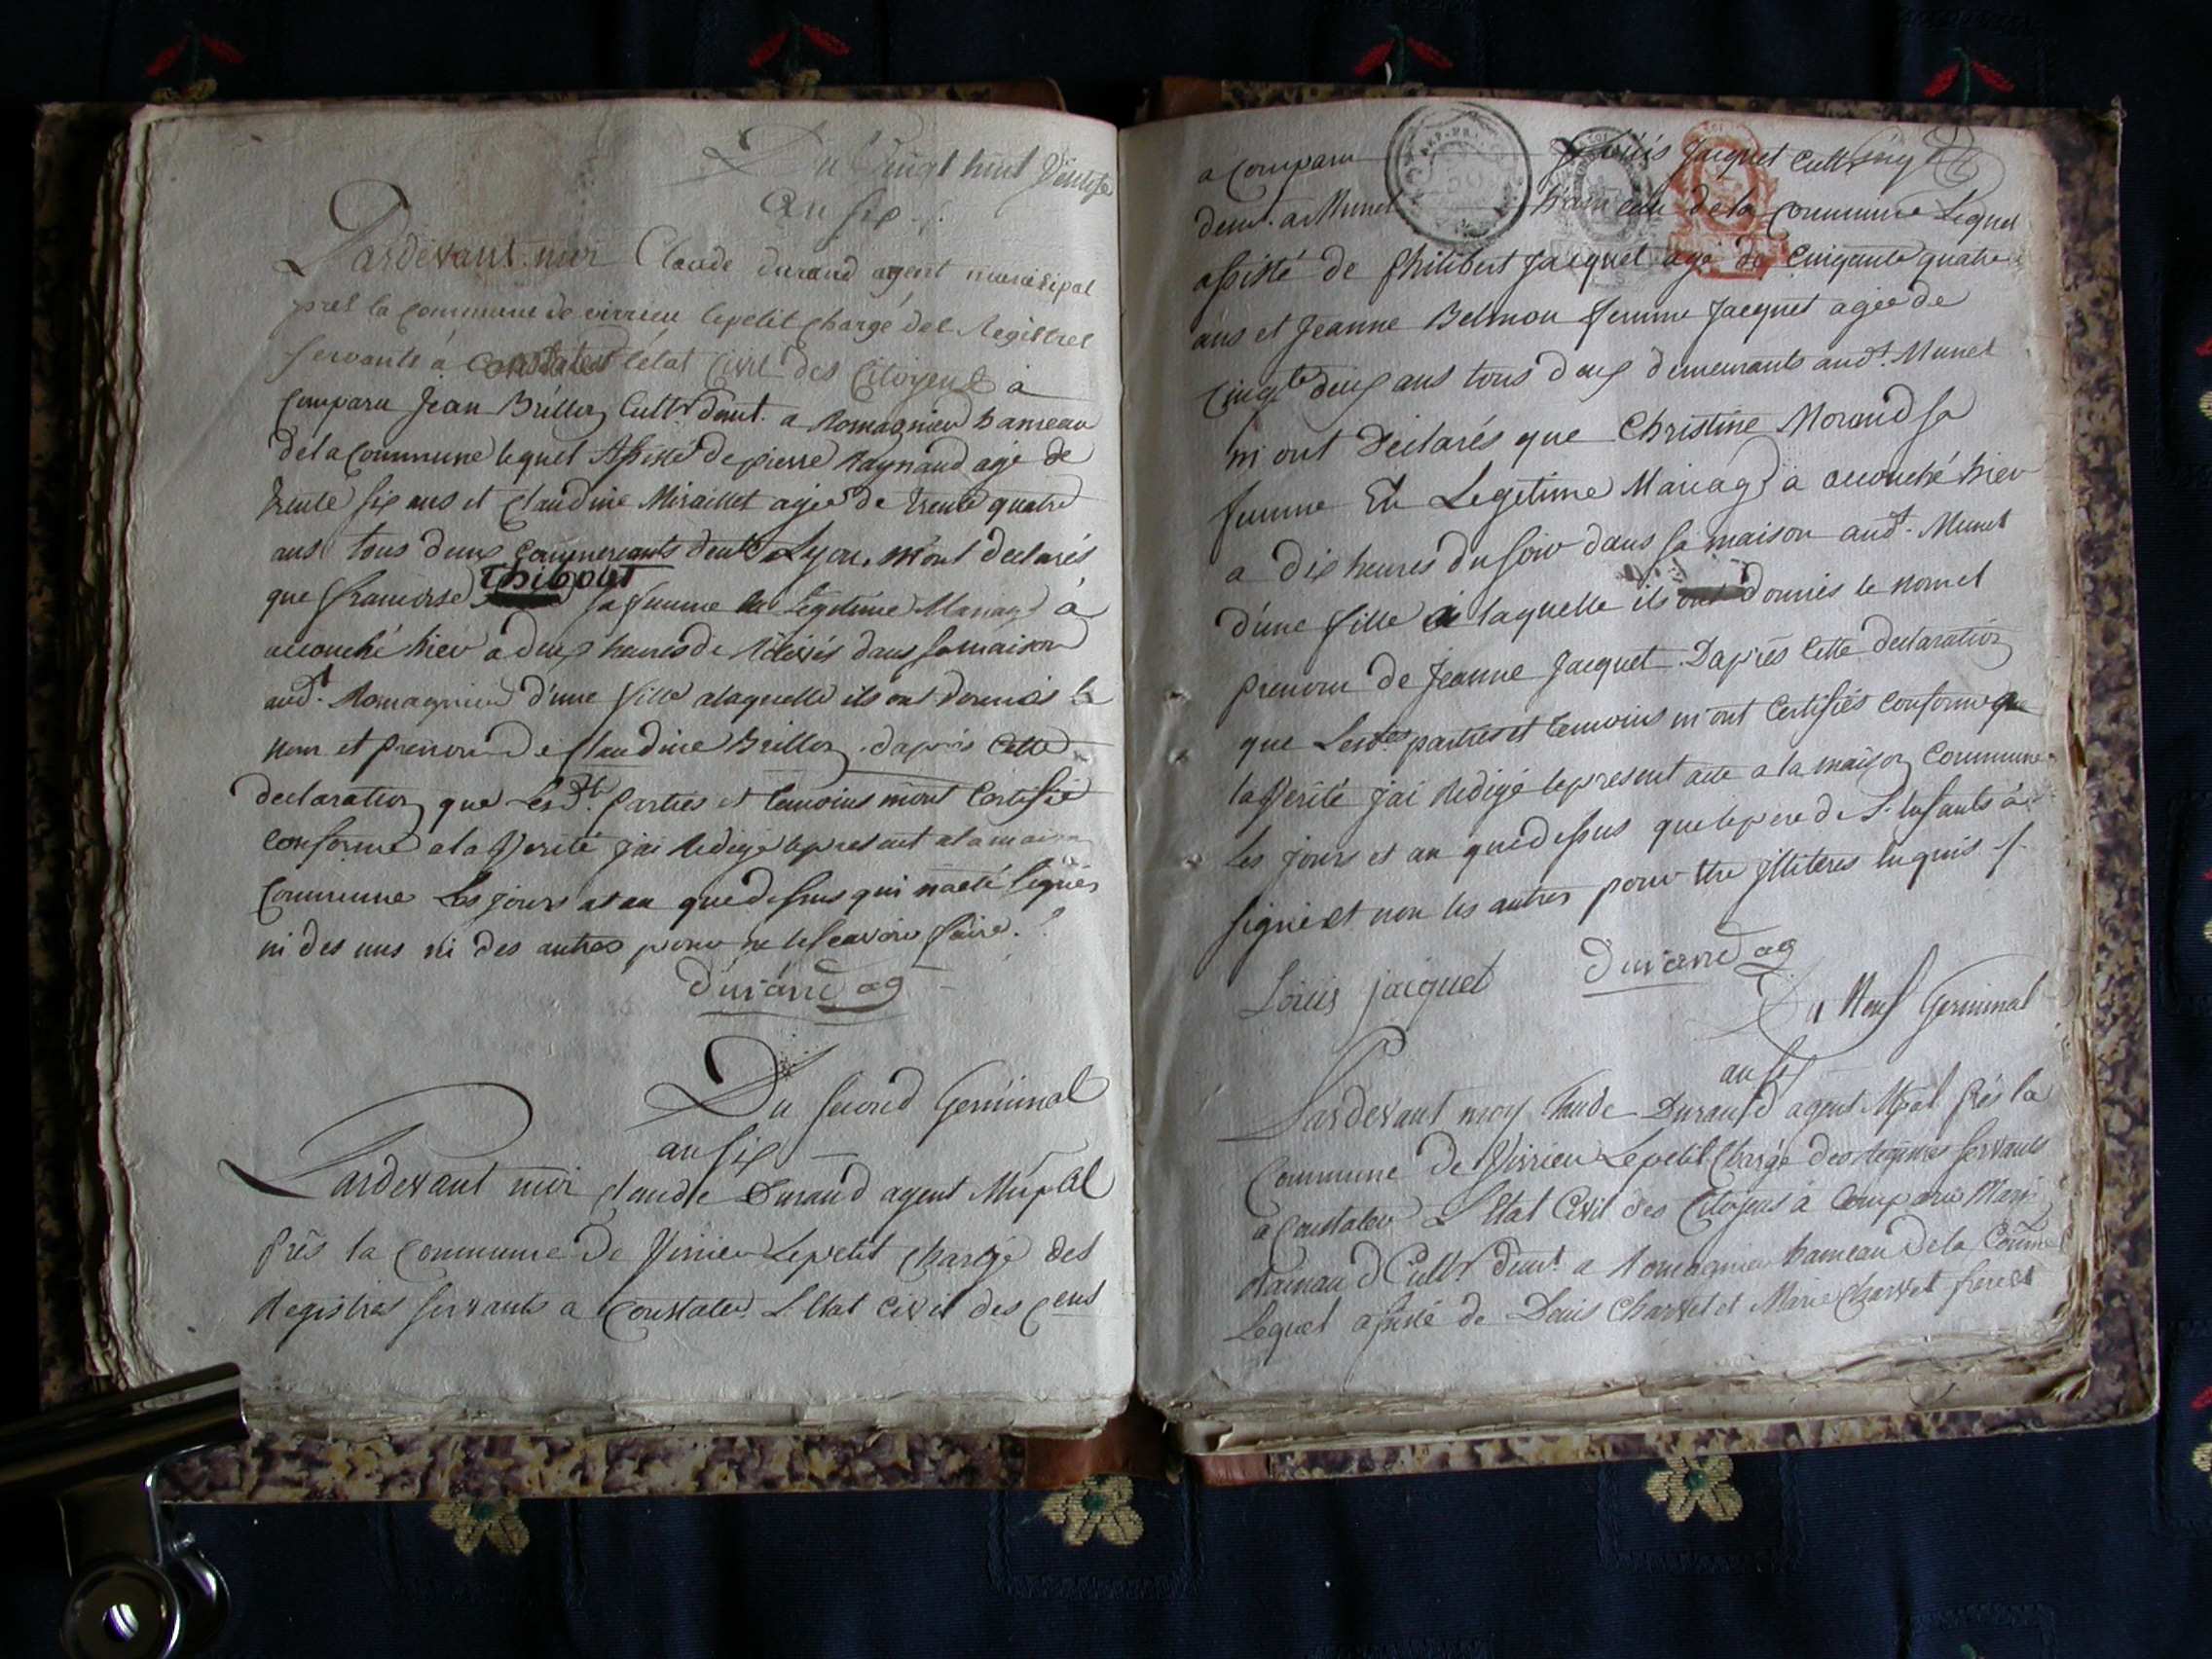 Du Vingt huit Ventose
an six
Pardevant moi Claude durand agent municipal
pres la commune de virrieu lepetit chargé des Registres
servants à constater l'état civil des Citoyens à
comparu Jean Brillon Cultr demt. a Romagnieu hameau
de la commune lequel assisté de pierre Raynaud agé de
trente six ans et Claudine Miraillet agée de trente quatre
ans tous deux commercants demt a Lyon, m'ont declarés
que francoise Thibolet sa femme en Legitime Mariage à
accouché hier a deux heures de dans sa maison
aud.t Romagnieu d'une fille a laquelle ils ont donnés le
nom et prenom de Claudine Brillon. dapres cette
declaration que Lesd.tes parties et temoins mont Certifié
conforme a la Verité jai Redigé le present a la maison
Commune Les jours et an que dessus qui na eté signés
ni des uns ni des autres pour ne le scavoir faire.
durand ag
Du second Germinal
an six
Pardevant moi claude Durand agent Mupal
Près la commune de Virrieu Lepetit chargé des
Registres servants a Constater L'Etat civil des cens
a comparu Louis Jacquet Cultr
demt. a Munet hameau de la commune Lequel
assisté de Philibert Jacquet agé de Cinquante quatre
ans et Jeanne Belmon femme Jacquet agée de
Cinqte deux ans tous deux demeurants audt. Munet
m'ont Déclarés que Christine Morand sa
femme En Legitime Mariage a accouché hier
a dix heures du soir dans sa maison audt. Munet
d'une fille à laquelle ils ont donnés le nom et
prenom de Jeanne Jacquet. Daprès Cette declaration
que Lesd.tes parties et temoins m'ont Certifiés conforme
la Verité jai Redigé le present acte a la maison Commune
Les jours et an que dessus que le pere de S. Enfants à
signé et non les autres pour etre illiteres Enquis
Louis jacquet durand ag
Du Neuf Germinal
an six
Pardevant moy Claude Durand agent Mpal Près la
Commune de Virrieu Lepetit Chargé des Registres servants
a Constater L'Etat Civil des Citoyens à Comparu
Rainaud Cultr demt. a Romagnieu hameau de la Comme
Lequel assisté de Denis Charvet et Marie Charvet